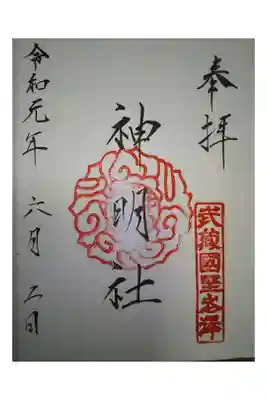 奉拝
武蔵國聖志澤
神明社
令和元年 六月 二日